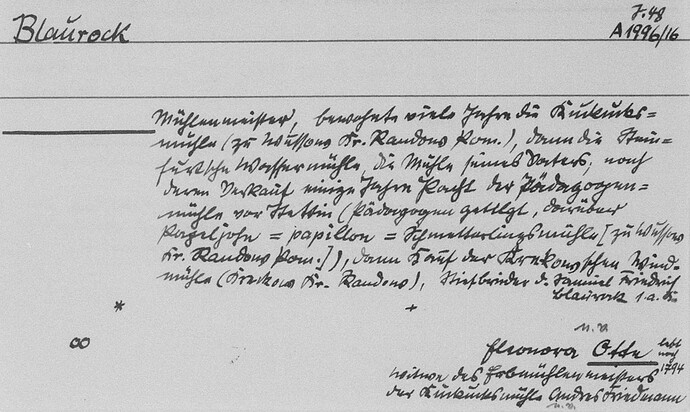 Blaurock
J. 48
A 1996/16
Mühlenmeister, bewohnte viele Jahre die Kuckucks=
mühle (zu Wussow Kr. Randow Pom.), dann die Stein=
furtsche Wassermühle, die Mühle seines Vaters, nach
deren Verkauf einige Jahre Pacht der Pädagogen=
mühle vor Stettin (Pädagogen getilgt, darüber
Pageljohn = papillon = Schmetterlingsmühle [zu Wussow
Kr. Randow Pom.]), dann Kauf der Krekowschen Wind=
mühle (Krekow Kr. Randow), Stiefbruder d. Samuel Friedrich
Blaurock s. a. d.
* +
∞ u. v.
Eleonora Otte lebt noch 1794
Witwe des Erbmühlenmeisters
der Kuckucksmühle Andres Friedmann
u. v.